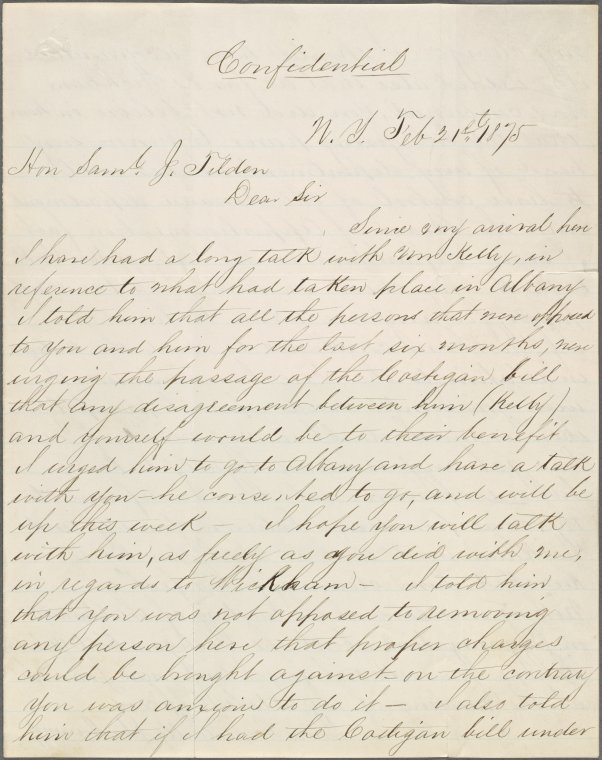 Confidential
N. Y. Feb 21st 1875
Hon Saml. J. Tilden
Dear Sir
Since my arrival here
I have had a long talk with Mr Kelly, in
reference to what had taken place in Albany
I told him that all the persons that were opposed
to you and him for the last six months, were
urging the passage of the Costigan bill
that any disagreement between him (Kelly)
and yourself would be to their benefit
I urged him to go to Albany and have a talk
with you - he consented to go, and will be
up this week - I hope you will talk
with him, as freely as you did with me,
in regards to Wickham - I told him
that you was not opposed to removing
any person here that proper charges
could be brought against - on the contrary
you was anxious to do it - I also told
him that if I had the Costigan bill under